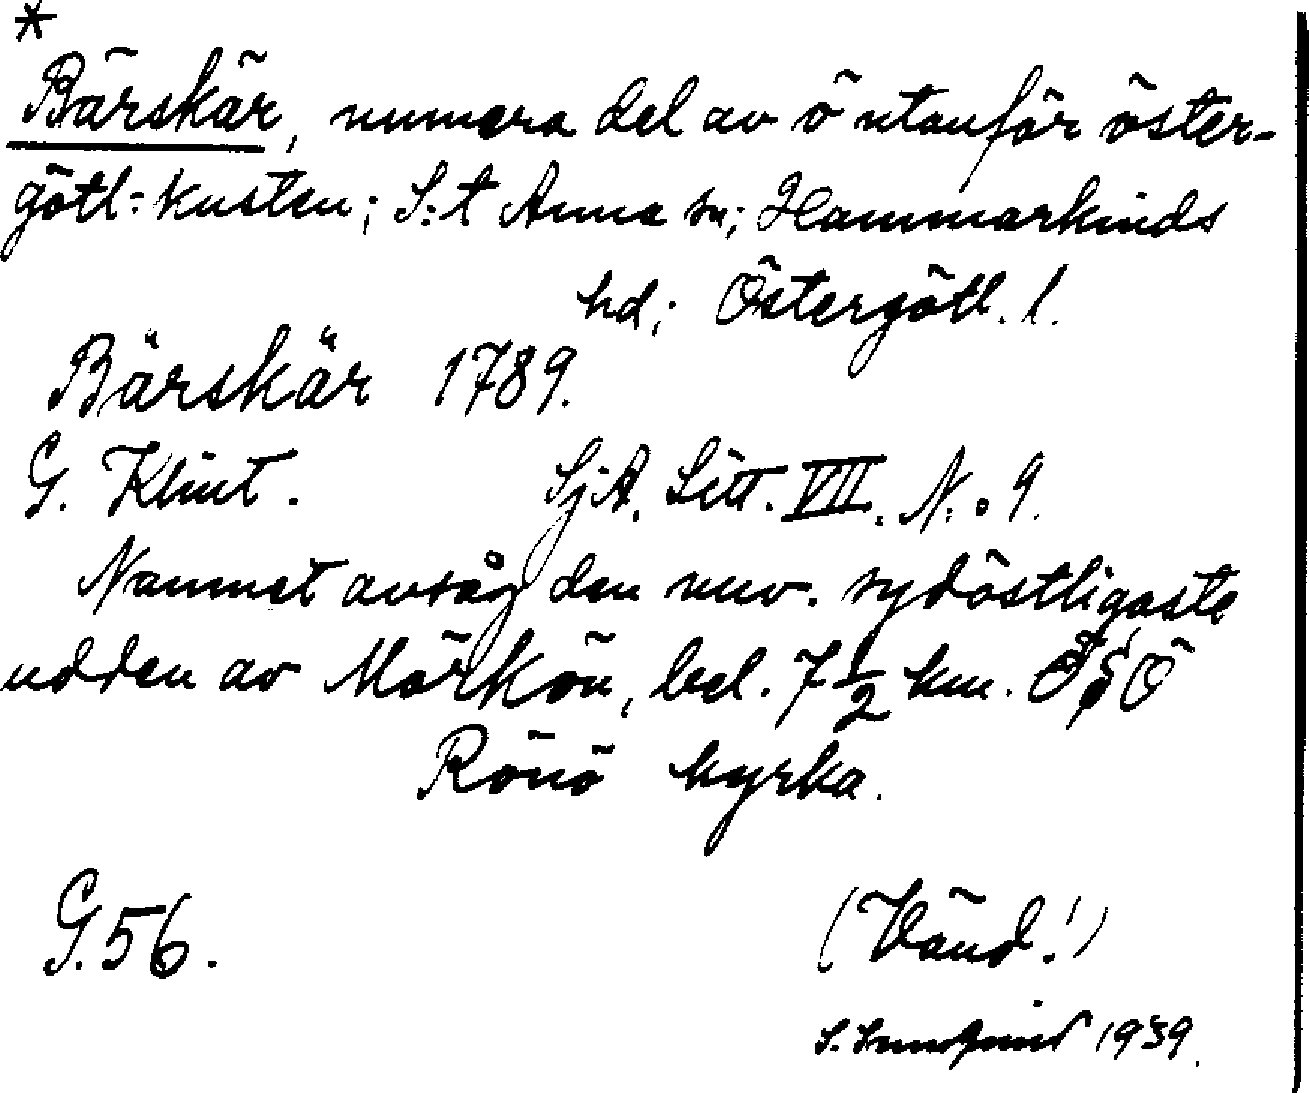 *
Bärskär, numera del av ö utanför öster-
götl:kusten; S:t Anna sn; Hammarkinds
hd; Östergötl. l.
Bärskär 1789.
G. Klint. SjA. Litt. VII. N:o 9.
Namnet avsåg den nuv. sydöstligaste
udden av Mörkön, bel. 7 1/2 km. Ö
Rönö kyrka.
G. 56. (Vänd!)
S. 1939.